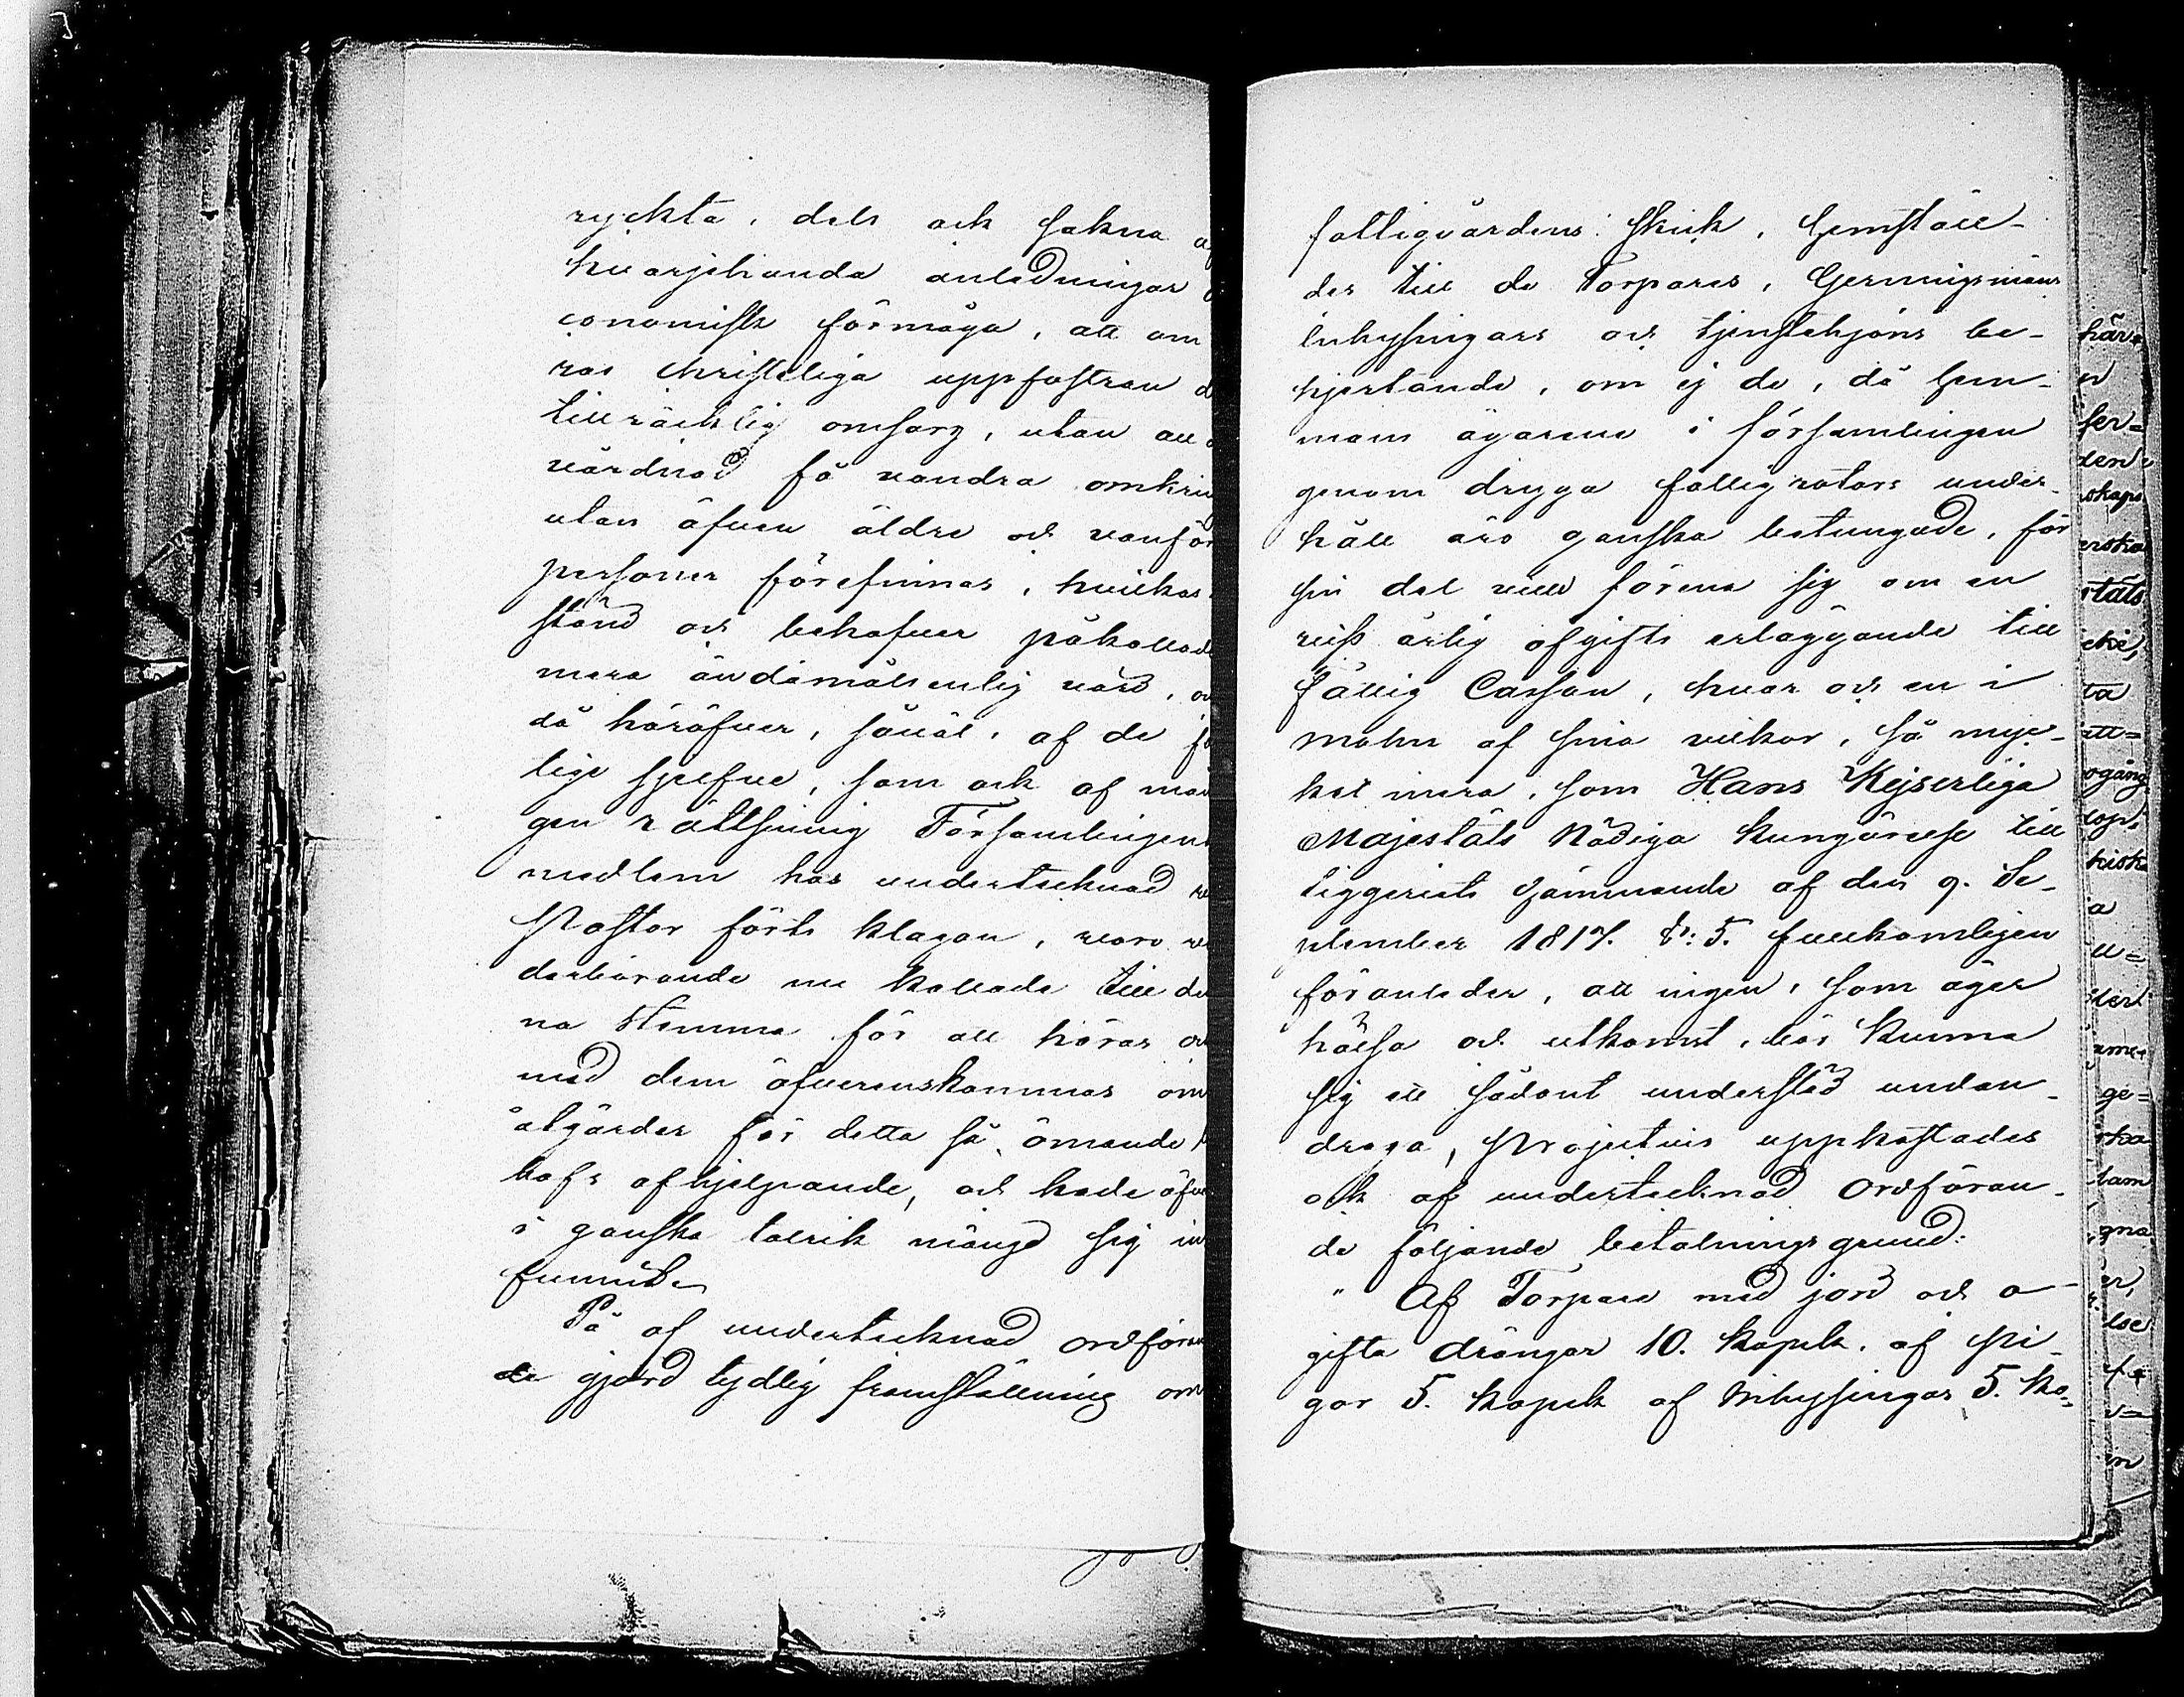 ryckta, dels ock sakna af
hvarjehanda anledningar
conomisk förmåga, att om
ras christeliga uppfostran d
tillräcklig omsorg, utan att
vårdnad få vandra omkrin
utan äfven äldre och vanför
personer förefinnas, hvilkas
stånd och behofver påkallade
mera ändamålsenlig vård, oc
då häröfver, såväl, af de
lige sjelfve, som ock af mån
gen rättsinnig Församlingens
medlem hos undertecknad
Pastor förts klagan, voro ve
derbörande nu kallade till den
na Stämma för att höras och
med dem öfverenskommas om
åtgärder för detta så ömande
hofs afhjelpande, och hade äfven
i ganska talrik mängd sig in
funnit.
På af undertecknad ordföran
de gjord tydlig framställning om
fattigvårdens skick, hemställ-
des till de Torpares, Gerningsmäns
Inhysingars och tjenstehjons be-
hjertande, om ej de, då hem-
mans ägarene i församlingen
genom dryga fattig rotars under-
håll äro ganska betungade, för
sin del ville förena sig om en
viss årlig afgifts erläggande till
Fattig Cassan, hvar och en i
mohn af sina vilkor, så myc-
ket mera, som Hans Kejserliga
Majestäts Nådiga Kungörelse till
tiggeriets hämmande af den 9. Se-
ptember 1817. §: 5. fullkomligen
föranleder, att ingen, som äger
hälsa och utkomst, bör kunna
sig ett sådant understöd undan-
draga, Projectvis uppkastades
ock af undertecknad Ordföran-
de följande betalnings grund:
" Af Torpare med jord och o-
gifta drängar 10. kopek. af Pi-
gor 5. kopek af Inhysingar 5. ko-